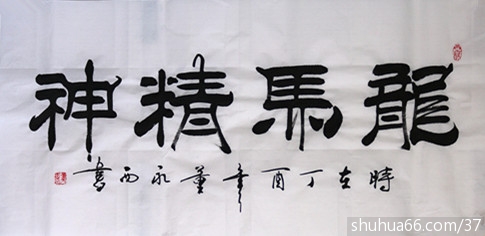 龍馬精神
時在丁酉年董永西書
shuhua66.com/37